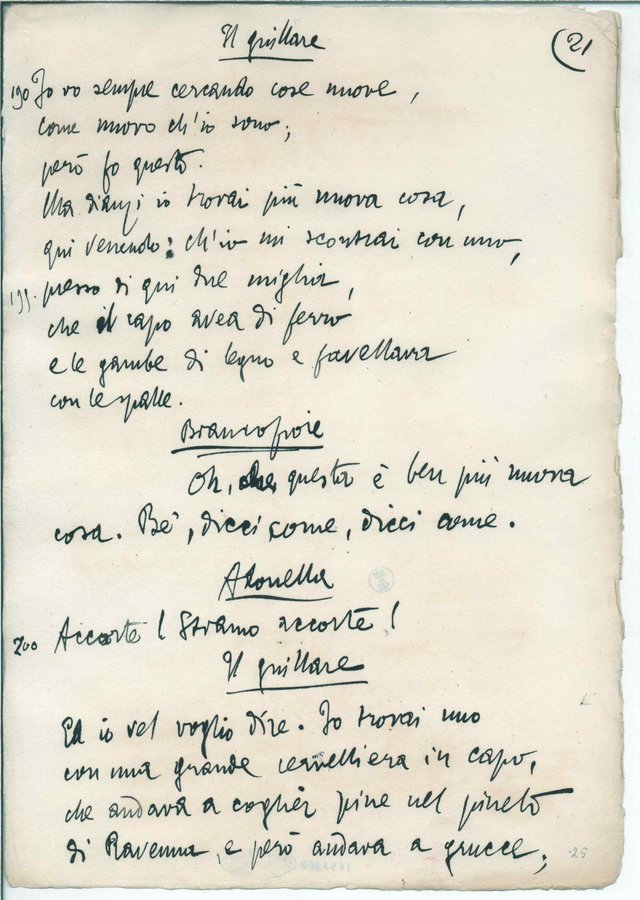 Il giullare
(21
190 Io vo sempre cercando cose nuove,
come nuovo ch'io sono;
però fo questo.
Ma dianzi io trovai più nuova cosa,
qui venendo: ch'io mi scontrai con uno,
195. presso di qui due miglia,
che il capo avea di ferro
e le gambe di legno e favellava
con le spalle.
Biancofiore
Oh, questa è ben più nuova
cosa. Be', dicci come, dicci come.
Adonella
200 Accorte! Stiamo accorte!
Il giullare
Ed io vel voglio dire. Io trovai uno
con una grande cervelliera in capo,
che andava a coglier pine nel pineto
di Ravenna, e però andava a grucce;
25